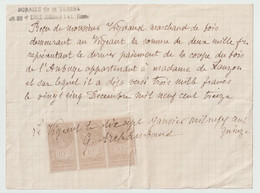 Reçu de monsieur Vigeaud marchand de bois
demeurant au Vigeant la somme de deux mille frs
représentant le dernier paiement de la coupe du bois
de l'Autuge appartenant à madame de Lauzon
et sur lequel il a déjà versé trois mille francs
le vingt cinq Décembre mil neuf cent treize
Le Vigeant le dix sept janvier mil neuf cent
quinze